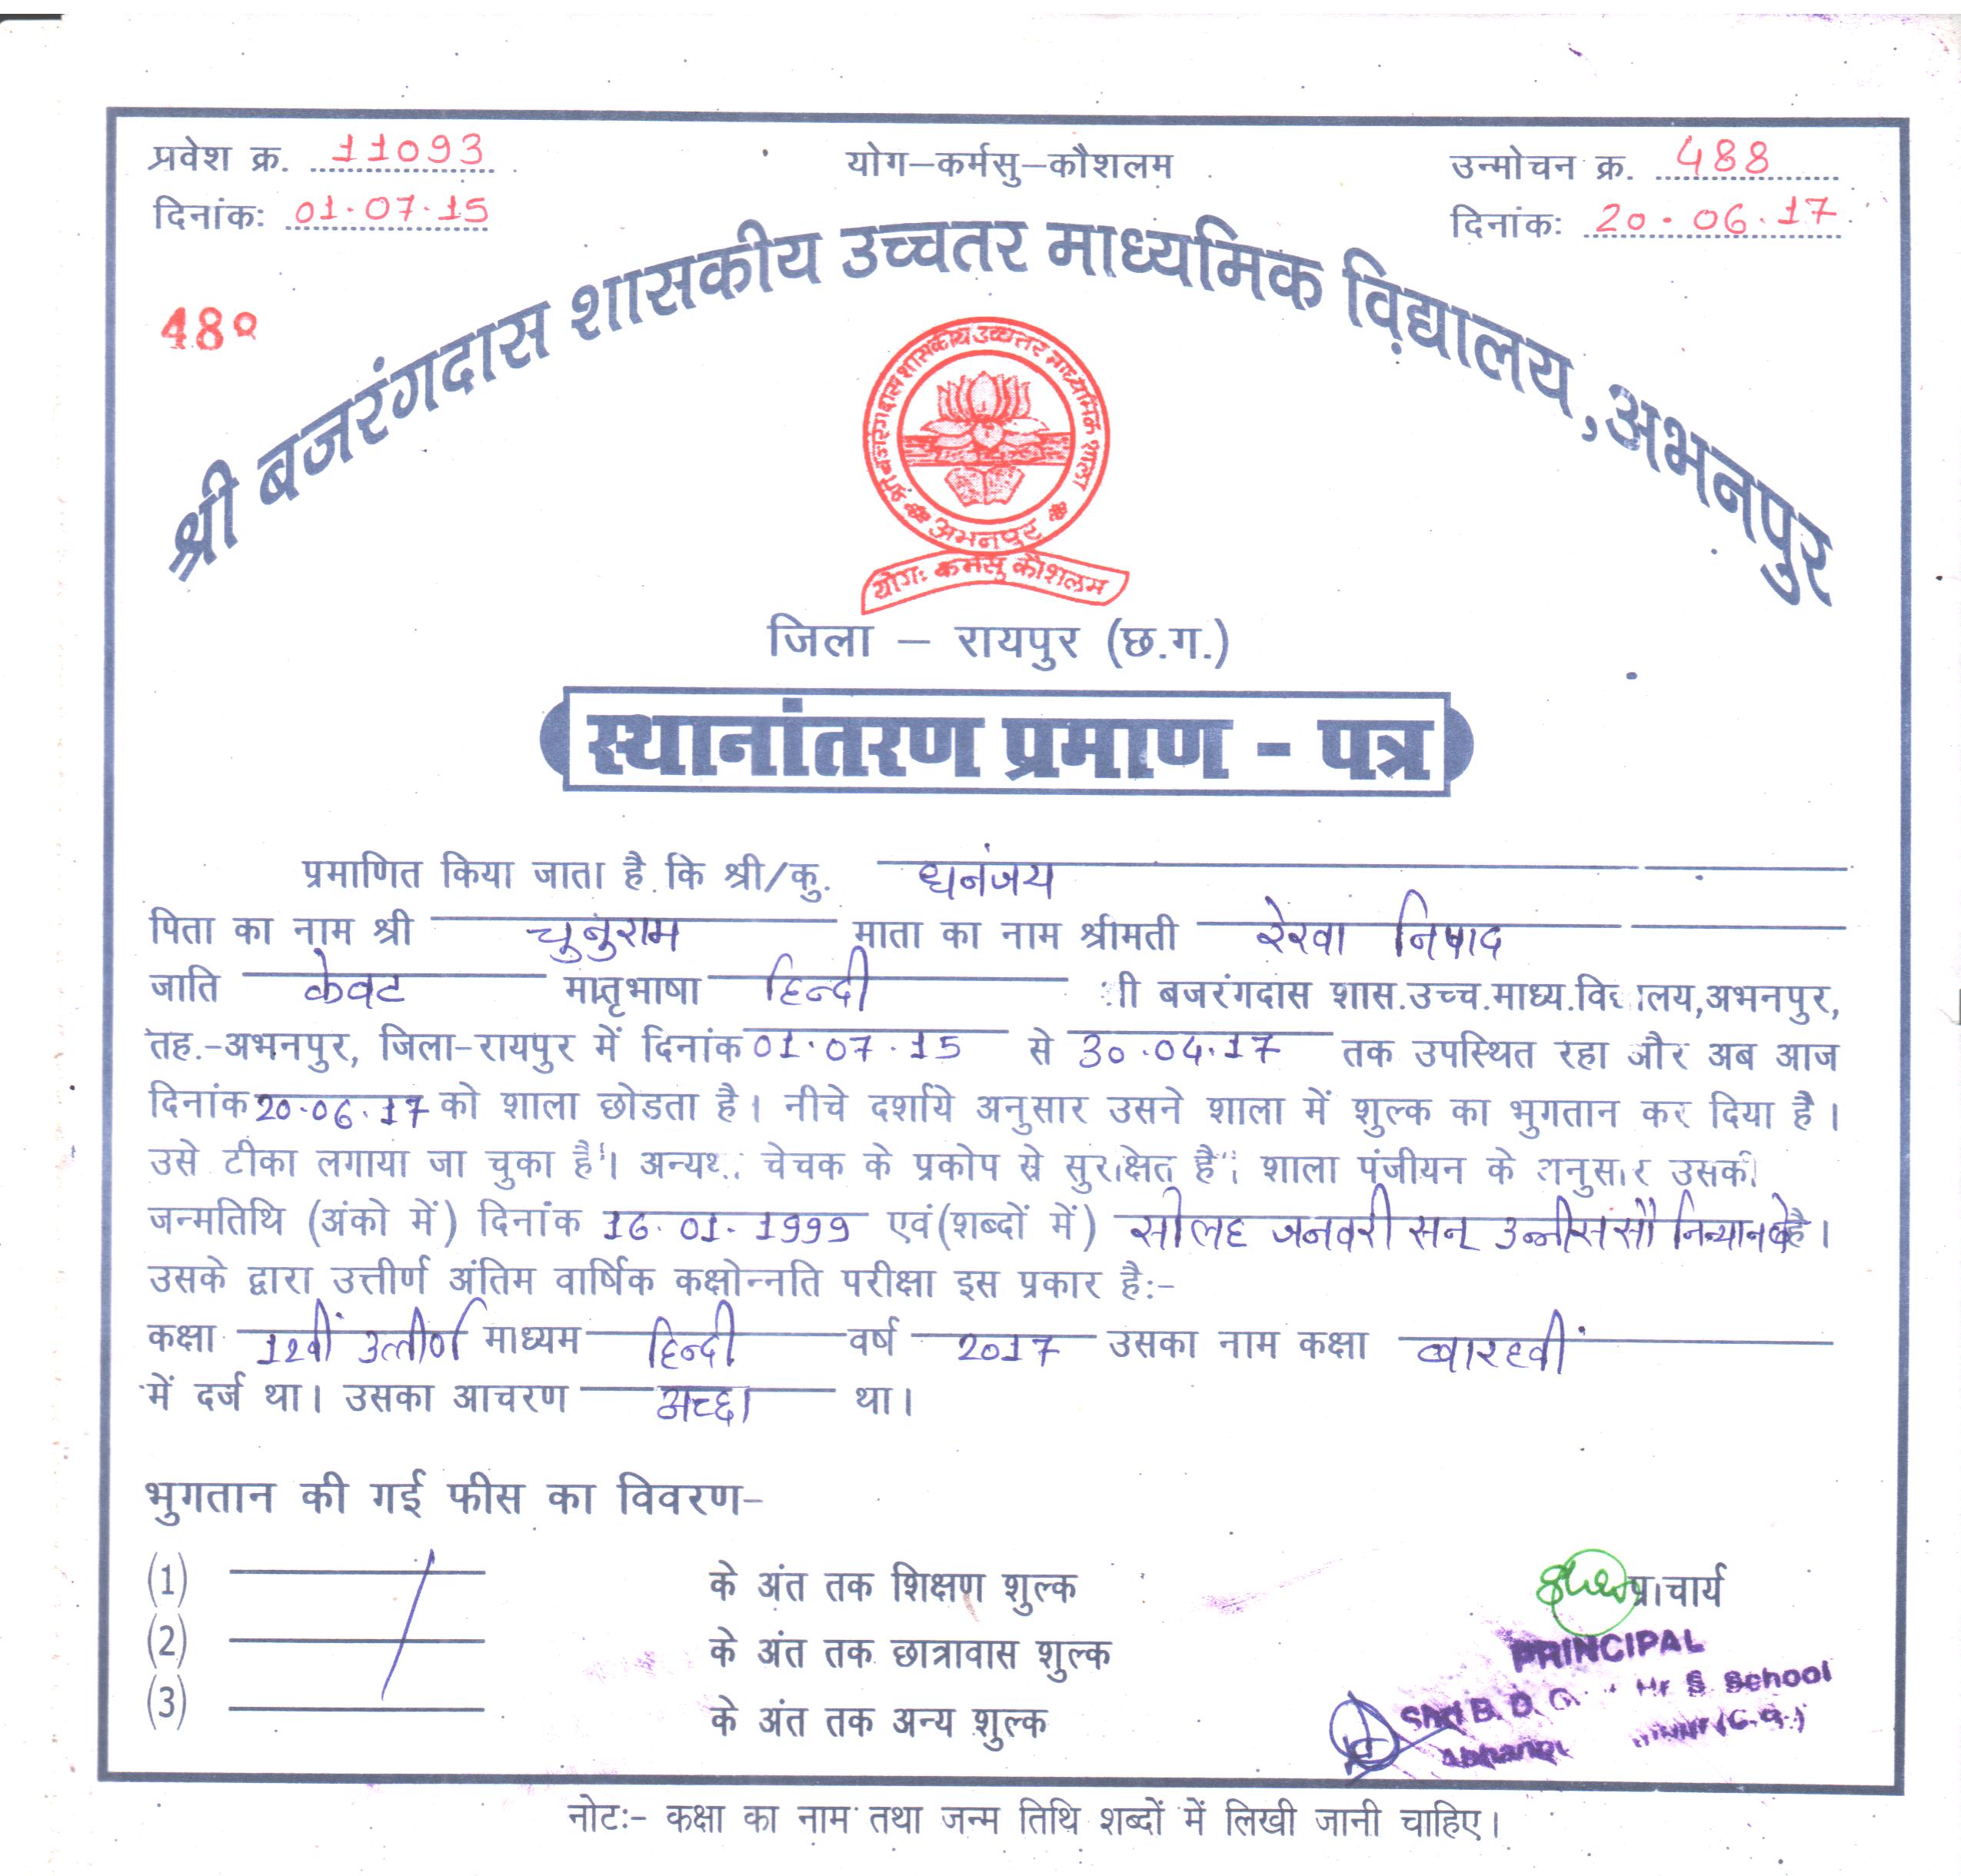 प्रवेश क्र. 11093
योग–कर्मसु–कौशलम
उन्मोचन क्र. 488
दिनांकः 01.07.15
दिनांकः 20.06.17
श्री बजरंगदास शासकीय उच्चतर माध्यमिक विद्यालय, अभनपुर
श्री बजरंगदास शासकीय उच्चत्तर माध्यमिक शाला
अभनपुर
योगः कर्मसु कौशलम
जिला – रायपुर (छ.ग.)
स्थानांतरण प्रमाण - पत्र
प्रमाणित किया जाता है कि श्री/कु. धनंजय
पिता का नाम श्री चुनुराम माता का नाम श्रीमती रेखा निषाद
जाति केवट मातृभाषा हिन्दी श्री बजरंगदास शास.उच्च.माध्य.विद्यालय,अभनपुर,
तह.-अभनपुर, जिला-रायपुर में दिनांक 01.07.15 से 30.04.17 तक उपस्थित रहा और अब आज
दिनांक 20.06.17 को शाला छोडता है। नीचे दर्शाये अनुसार उसने शाला में शुल्क का भुगतान कर दिया है।
उसे टीका लगाया जा चुका है। अन्यथा चेचक के प्रकोप से सुरक्षित है। शाला पंजीयन के अनुसार उसकी
जन्मतिथि (अंको में) दिनांक 16.01.1999 एवं(शब्दों में) सोलह जनवरी सन् उन्नीस सौ निन्यानबे है।
उसके द्वारा उत्तीर्ण अंतिम वार्षिक कक्षोन्नति परीक्षा इस प्रकार है:-
कक्षा 12वीं उत्तीर्ण माध्यम हिन्दी वर्ष 2017 उसका नाम कक्षा बारहवीं
में दर्ज था। उसका आचरण अच्छा था।
भुगतान की गई फीस का विवरण-
(1) के अंत तक शिक्षण शुल्क
(2) के अंत तक छात्रावास शुल्क
(3) के अंत तक अन्य शुल्क
प्राचार्य
PRINCIPAL
Shri B. D. Hr S School
(C.G.)
नोटः- कक्षा का नाम तथा जन्म तिथि शब्दों में लिखी जानी चाहिए।